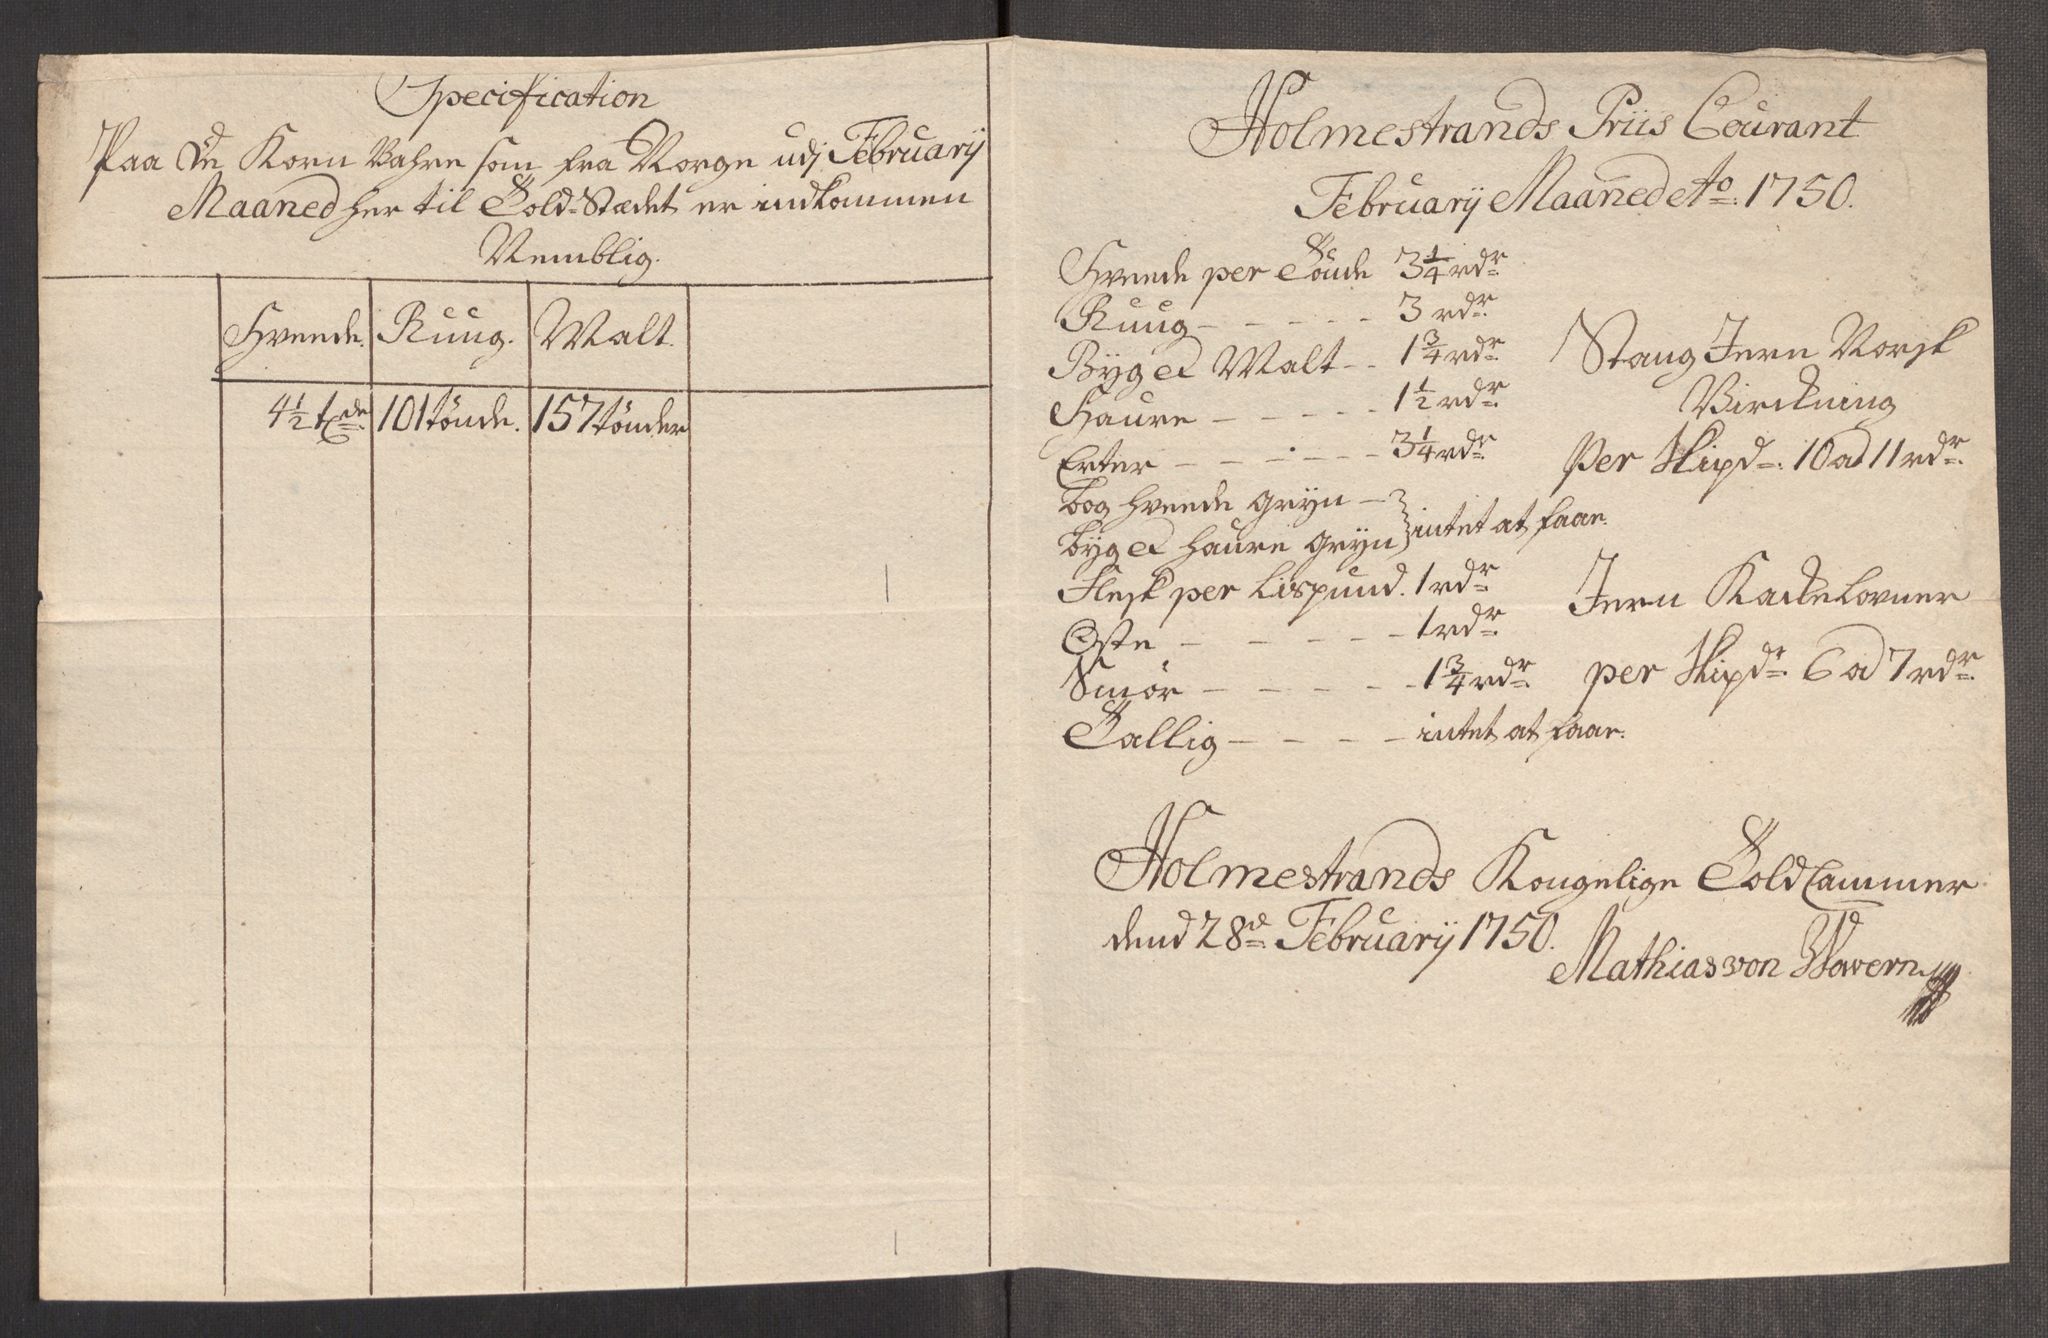 Specification
Paa de Korn Vahre som fra Norge udj February
Maaned her til Told-Stædet er indkommen
Nemblig.
Hvede. Ruug. Malt.
4½ tde 101 tønde. 157 tønder
Holmestrands Priis Courant
February Maaned Ao. 1750.
Hvede per Tönde 3¼ rdr
Ruug - - - - - 3 rdr.
Byg et Malt - - 1¾ rdr
Haure - - - - - 1½ rdr.
Erter - - - - - - 3¼ rdr.
bog hvede gryn -
byg et haure gryn } intet at faae.
Flesk per Lispund. 1 rdr
Oste - - - - - 1 rdr.
Smør - - - - - 1¾ rdr
Tallig - - - - intet at faae.
Stang Jern Norsk
Virckning
Per Skipd. 10 a 11 rdr.
Jern Kackelovner
per Skipd 6 a 7 rdr.
Holmestrands Kongelige Told Cammer
dend 28d February 1750.
Mathias von Wowern